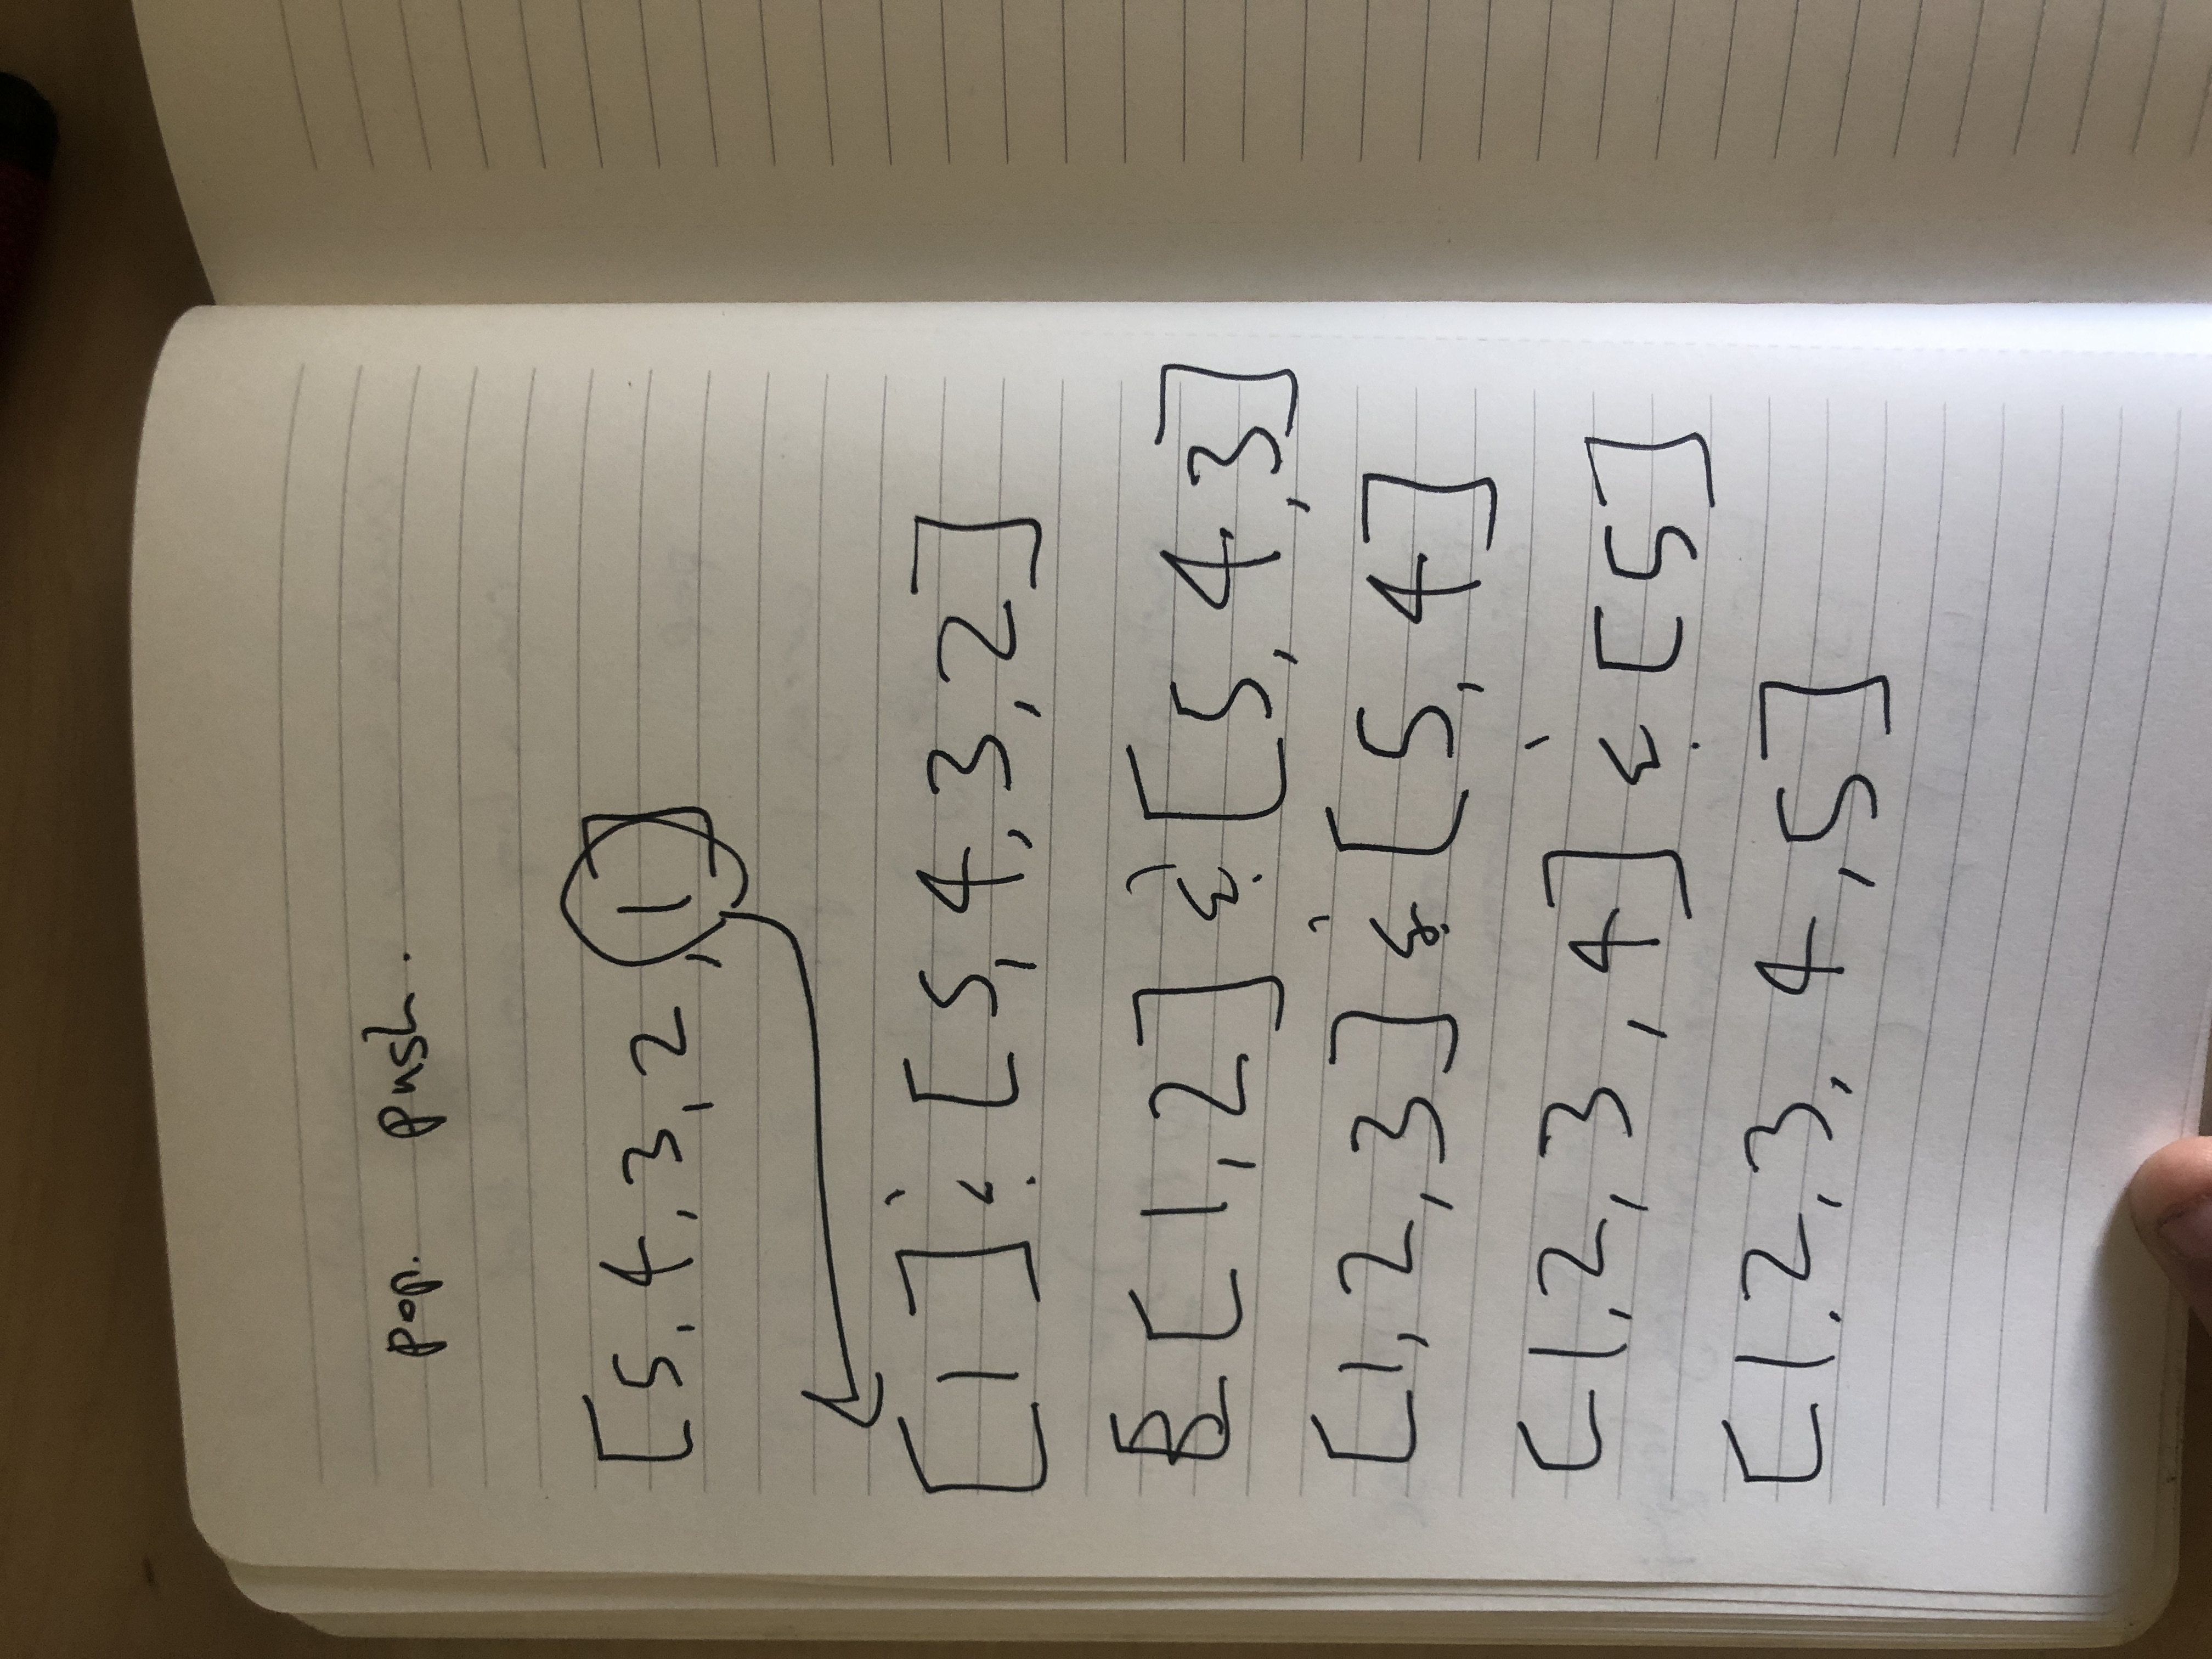 pop. push.
[5, 4, 3, 2, 1]
[1] & [5, 4, 3, 2]
[1, 2] & [5, 4, 3]
[1, 2, 3] & [5, 4]
[1, 2, 3, 4] & [5]
[1, 2, 3, 4, 5]